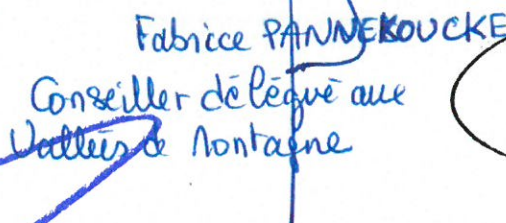 Fabrice PANNEKOUCKE
Conseiller délégué aux
Vallées de Montagne